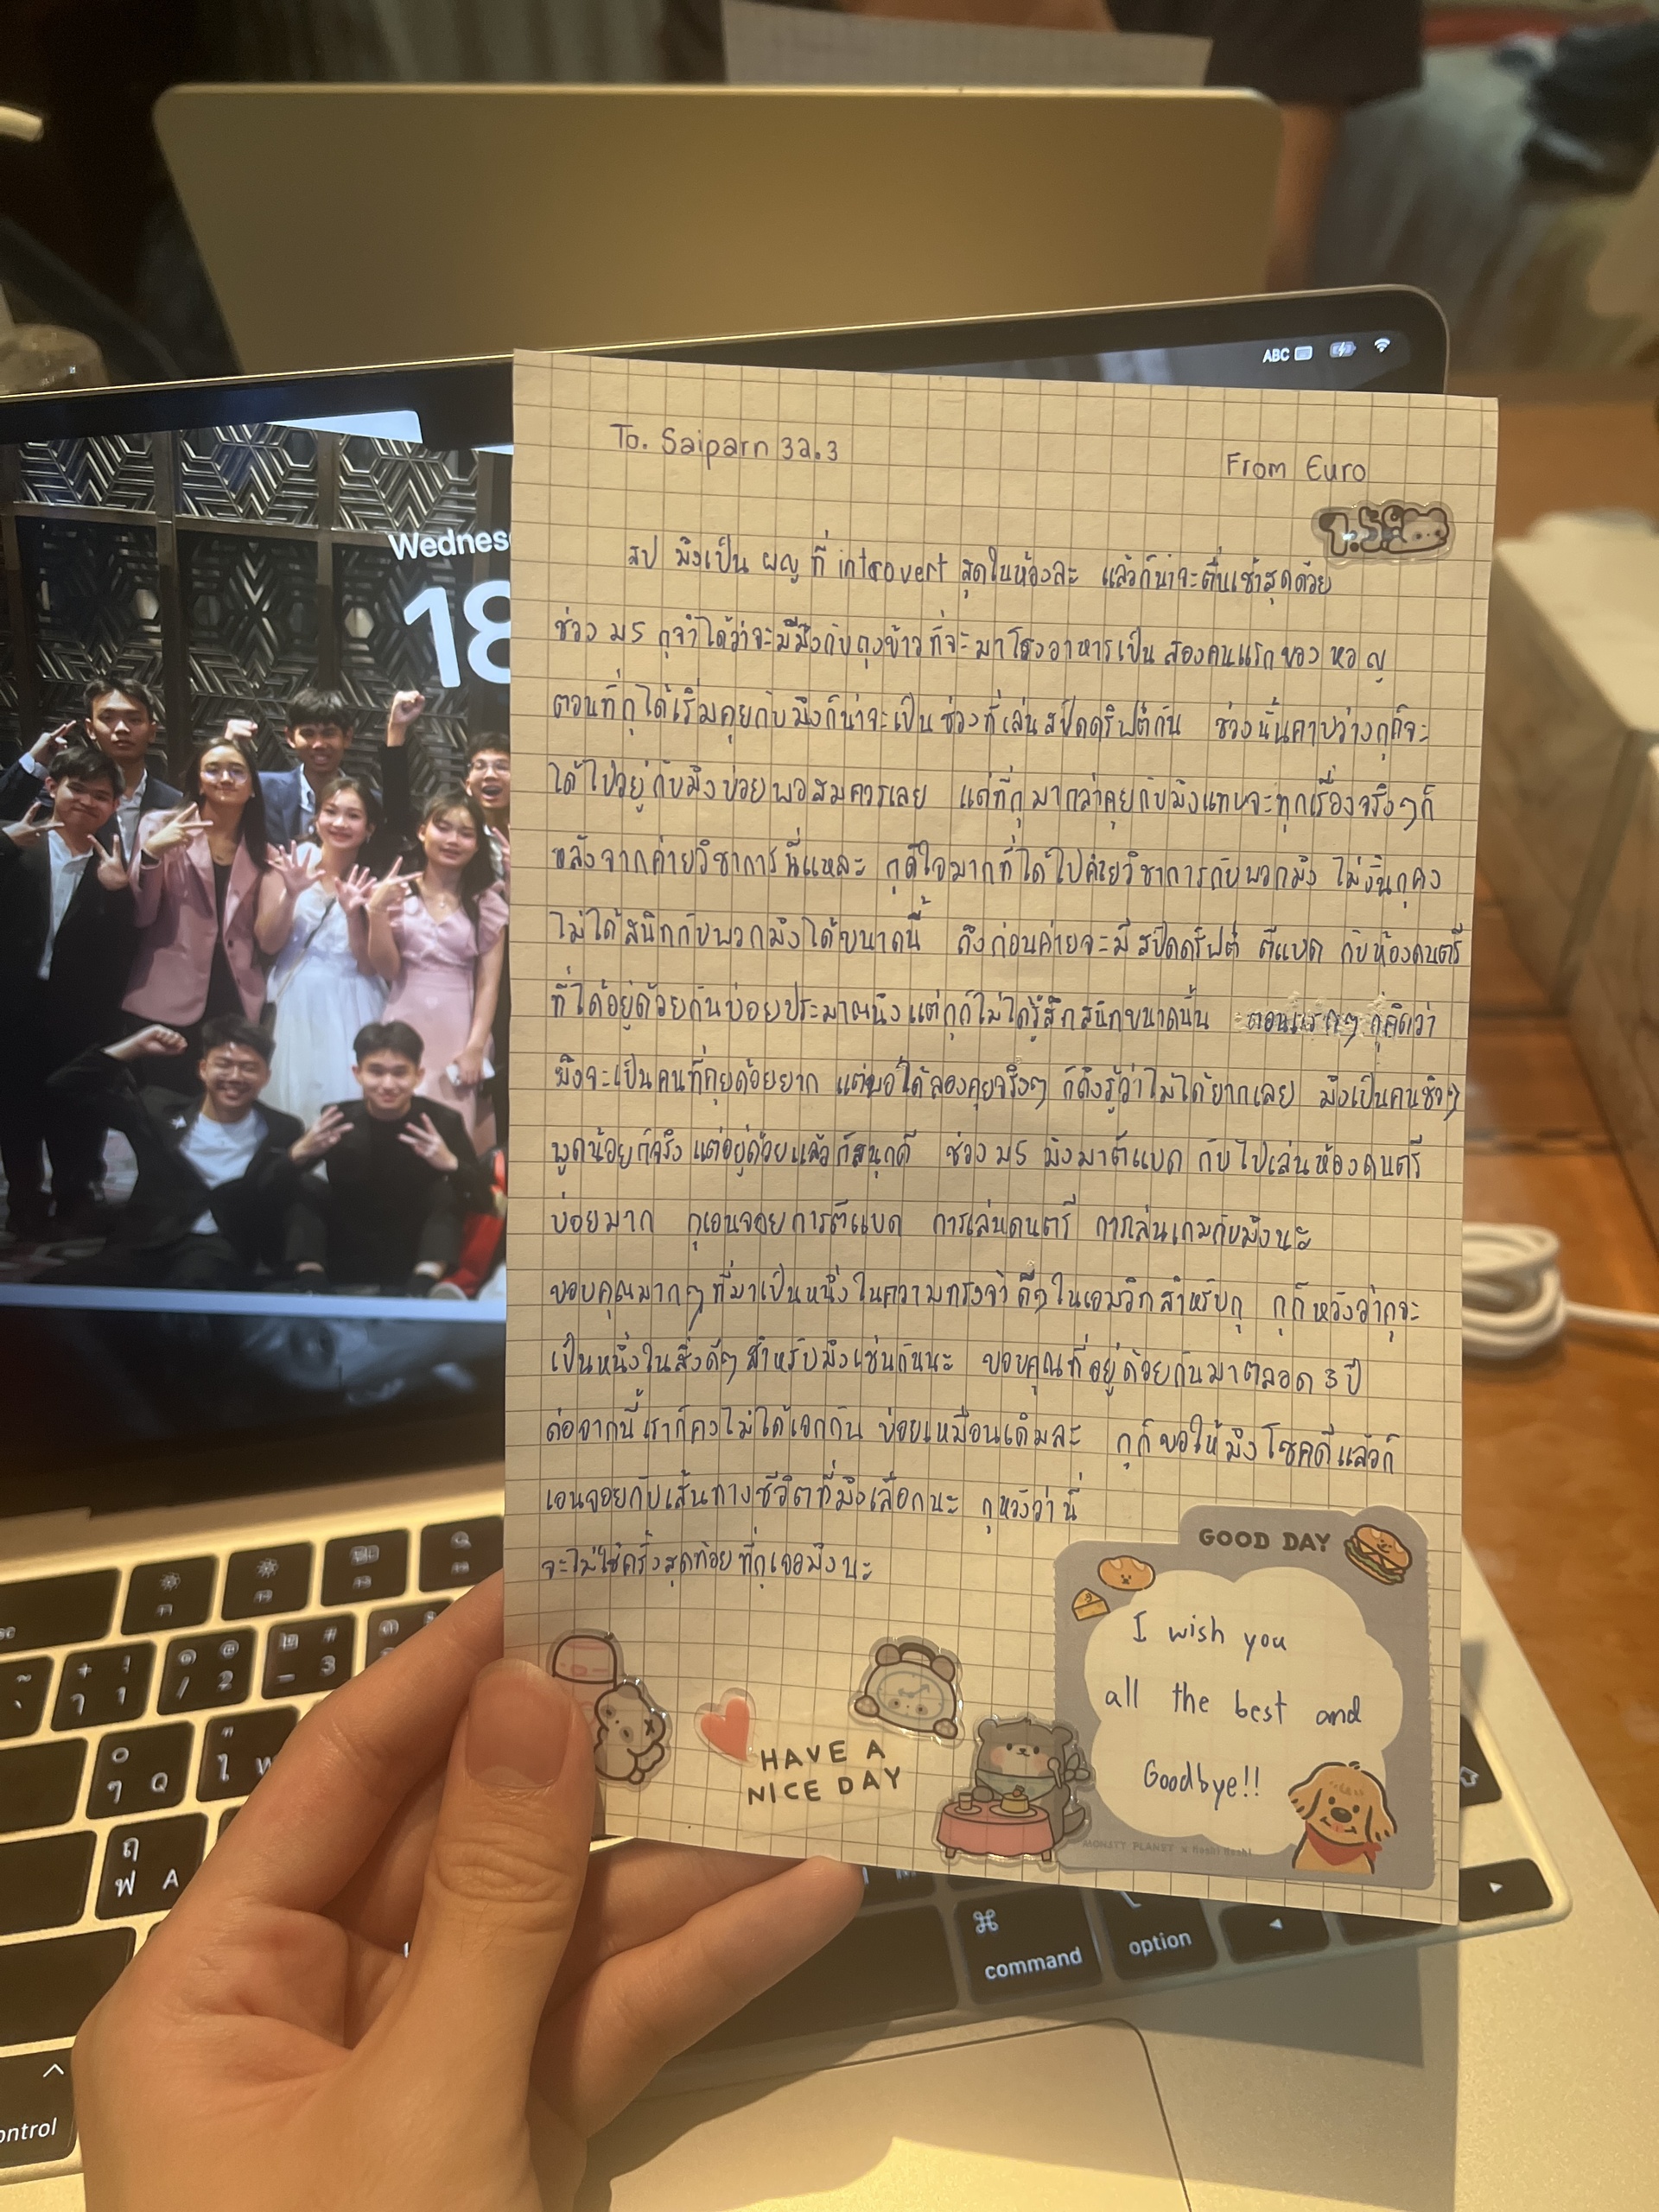 ABC
Wednes
18
To. Saiparn 32.3
From Euro
สป มึงเป็น ผญ ที่ introvert สุดในห้องละ แล้วก็น่าจะตื่นเช้าสุดด้วย
ช่วง ม5 กูจำได้ว่าจะมีมึงกับถุงข้าวที่จะมาโรงอาหารเป็น สองคนแรกของ หอ ญ
ตอนที่กูได้เริ่มคุยกับมึงก็น่าจะเป็นช่วงที่เล่นสปีดดริฟต์กัน ช่วงนั้นคาบว่างกูก็จะ
ได้ไปอยู่กับมึงบ่อยพอสมควรเลย แต่ที่กูมากล้าคุยกับมึงแทบจะทุกเรื่องจริงๆก็
หลังจากค่ายวิชาการนี่แหละ กูดีใจมากที่ได้ไปค่ายวิชาการกับพวกมึง ไม่งั้นกูคง
ไม่ได้สนิทกับพวกมึงได้ขนาดนี้ ถึงก่อนค่ายจะมีสปีดดริฟต์ ตีแบด กับห้องดนตรี
ที่ได้อยู่ด้วยกันบ่อยประมาณนึง แต่กูก็ไม่ได้รู้สึกสนิทขนาดนั้น ตอนแรกๆ กูคิดว่า
มึงจะเป็นคนที่คุยด้วยยาก แต่พอได้ลองคุยจริงๆ ก็ถึงรู้ว่าไม่ได้ยากเลย มึงเป็นคนชิวๆ
พูดน้อยก็จริง แต่อยู่ด้วยแล้วก็สนุกดี ช่วง ม5 มึงมาตีแบด กับไปเล่นห้องดนตรี
บ่อยมาก กูเอนจอยการตีแบด การเล่นดนตรี การเล่นเกมกับมึงนะ
ขอบคุณมากๆ ที่มาเป็นหนึ่งในความทรงจำดีๆ ในเอมวิทสำหรับกู กูก็หวังว่ากูจะ
เป็นหนึ่งในสิ่งดีๆ สำหรับมึงเช่นกันนะ ขอบคุณที่อยู่ด้วยกันมาตลอด 3 ปี
ต่อจากนี้เราก็คงไม่ได้เจอกัน บ่อยเหมือนเดิมละ กูก็ขอให้มึงโชคดีแล้วก็
เอนจอยกับเส้นทางชีวิตที่มึงเลือกนะ กูหวังว่านี่
จะไม่ใช่ครั้งสุดท้อยที่กูเจอมึงนะ
GOOD DAY
I wish you
all the best and
Goodbye!!
HAVE A
NICE DAY
command
option
ontrol